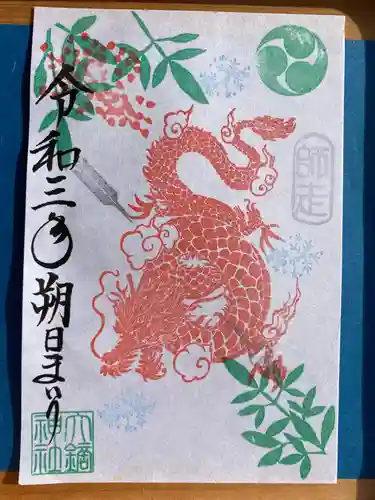 令和三年朔日まいり
師走
六鏑
神社